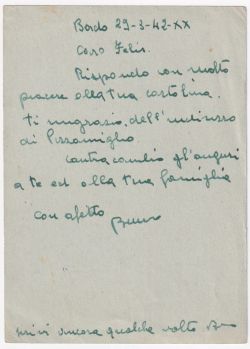 Bordo 29-3-42-XX
Caro Felis.
Rispondo con molto
piacere alla tua cartolina.
ti ringrazio dell'indirizzo
di Pizzamiglio.
Contracambio gl'auguri
a te ed alla tua famiglia
con afetto
Bruno
scrivi ancora qualche volta